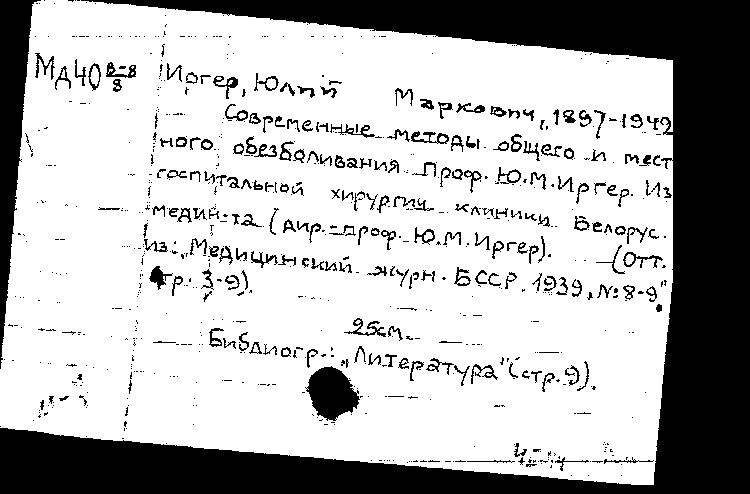 Мд40 8-8/8
Иргер, Юлий Маркович, 1897-1942
Современные методы общего и мест
ного обезболивания Проф. Ю.М.Иргер. Из
госпитальной хирургич. клиники Белорус.
медин-та (дир.-проф. Ю.М.Иргер). (Отт.
из: „Медицинский журн. БССР. 1939, №8-9"
стр. 3-9).
25см.
Библиогр.: „Литература" (стр.9).